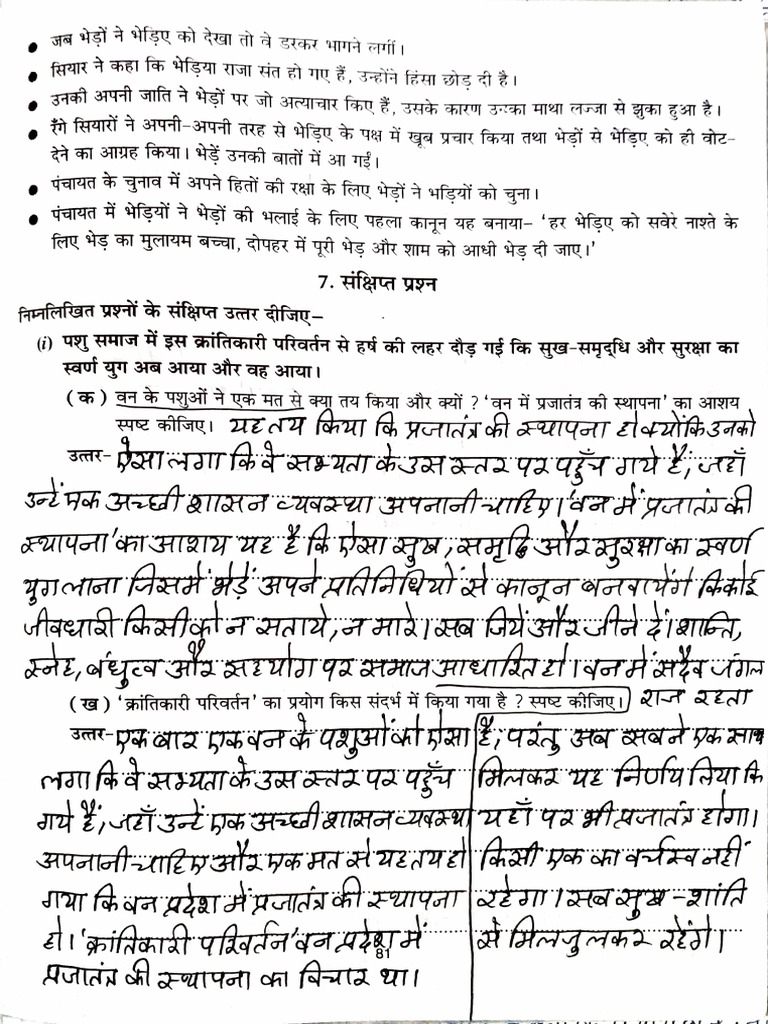 • जब भेड़ों ने भेड़िए को देखा तो वे डरकर भागने लगीं।
• सियार ने कहा कि भेड़िया राजा संत हो गए हैं, उन्होंने हिंसा छोड़ दी है।
• उनकी अपनी जाति ने भेड़ों पर जो अत्याचार किए हैं, उसके कारण उनका माथा लज्जा से झुका हुआ है।
• रँगे सियारों ने अपनी-अपनी तरह से भेड़िए के पक्ष में खूब प्रचार किया तथा भेड़ों से भेड़िए को ही वोट-
देने का आग्रह किया। भेड़ें उनकी बातों में आ गईं।
• पंचायत के चुनाव में अपने हितों की रक्षा के लिए भेड़ों ने भड़ियों को चुना।
• पंचायत में भेड़ियों ने भेड़ों की भलाई के लिए पहला कानून यह बनाया- 'हर भेड़िए को सवेरे नाश्ते के
लिए भेड़ का मुलायम बच्चा, दोपहर में पूरी भेड़ और शाम को आधी भेड़ दी जाए।'
7. संक्षिप्त प्रश्न
निम्नलिखित प्रश्नों के संक्षिप्त उत्तर दीजिए–
(i) पशु समाज में इस क्रांतिकारी परिवर्तन से हर्ष की लहर दौड़ गई कि सुख-समृद्धि और सुरक्षा का
स्वर्ण युग अब आया और वह आया।
(क) वन के पशुओं ने एक मत से क्या तय किया और क्यों ? 'वन में प्रजातंत्र की स्थापना' का आशय
स्पष्ट कीजिए। यह तय किया कि प्रजातंत्र की स्थापना हो क्योंकि उनको
उत्तर- ऐसा लगा कि वे सभ्यता के उस स्तर पर पहुँच गये हैं, जहाँ
उन्हें एक अच्छी शासन व्यवस्था अपनानी चाहिए। 'वन में प्रजातंत्र की
स्थापना' का आशय यह है कि ऐसा सुख, समृद्धि और सुरक्षा का स्वर्ण
युग लाना जिसमें भेड़ें अपने प्रतिनिधियों से कानून बनवायेंगे कि कोई
जीवधारी किसी को न सताये, न मारे। सब जियें और जीने दें। शान्ति,
स्नेह, बंधुत्व और सहयोग पर समाज आधारित हो। वन में सदैव जंगल
(ख) 'क्रांतिकारी परिवर्तन' का प्रयोग किस संदर्भ में किया गया है ? स्पष्ट कीजिए। राज रहता
उत्तर- एक बार एक वन के पशुओं को ऐसा
लगा कि वे सभ्यता के उस स्तर पर पहुँच
गये हैं, जहाँ उन्हें एक अच्छी शासन व्यवस्था
अपनानी चाहिए और एक मत से यह तय हो
गया कि वन प्रदेश में प्रजातंत्र की स्थापना
हो। 'क्रांतिकारी परिवर्तन' वन प्रदेश में
प्रजातंत्र की स्थापना का विचार था।
है, परंतु अब सबने एक साथ
मिलकर यह निर्णय लिया कि
यहाँ पर भी प्रजातंत्र होगा।
किसी एक का वर्चस्व नहीं
रहेगा। सब सुख-शांति
से मिलजुलकर रहेंगे।
81